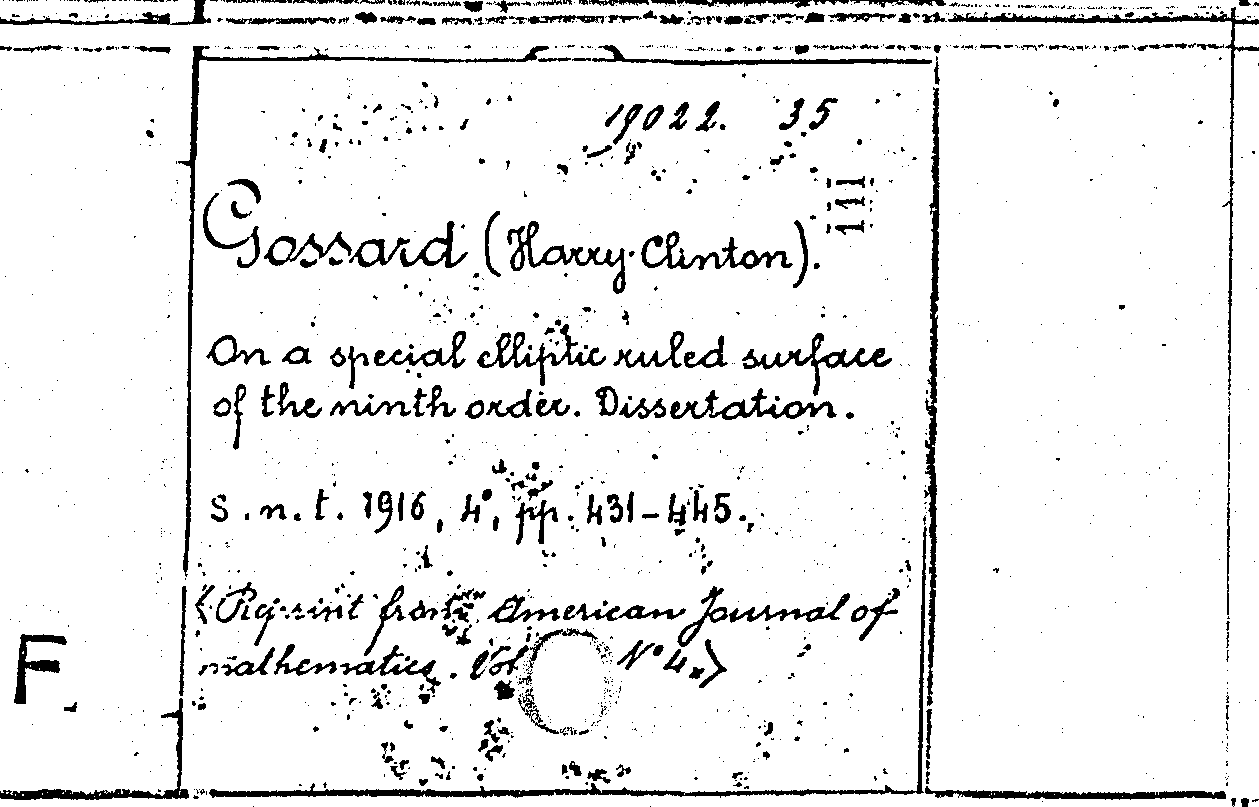 19022. 35
111
Gossard (Harry Clinton).
On a special elliptic ruled surface
of the ninth order. Dissertation.
s.n.t. 1916, 4°, pp. 431-445.
<Reprint from American Journal of
mathematics. Vol N° 4.>
F.